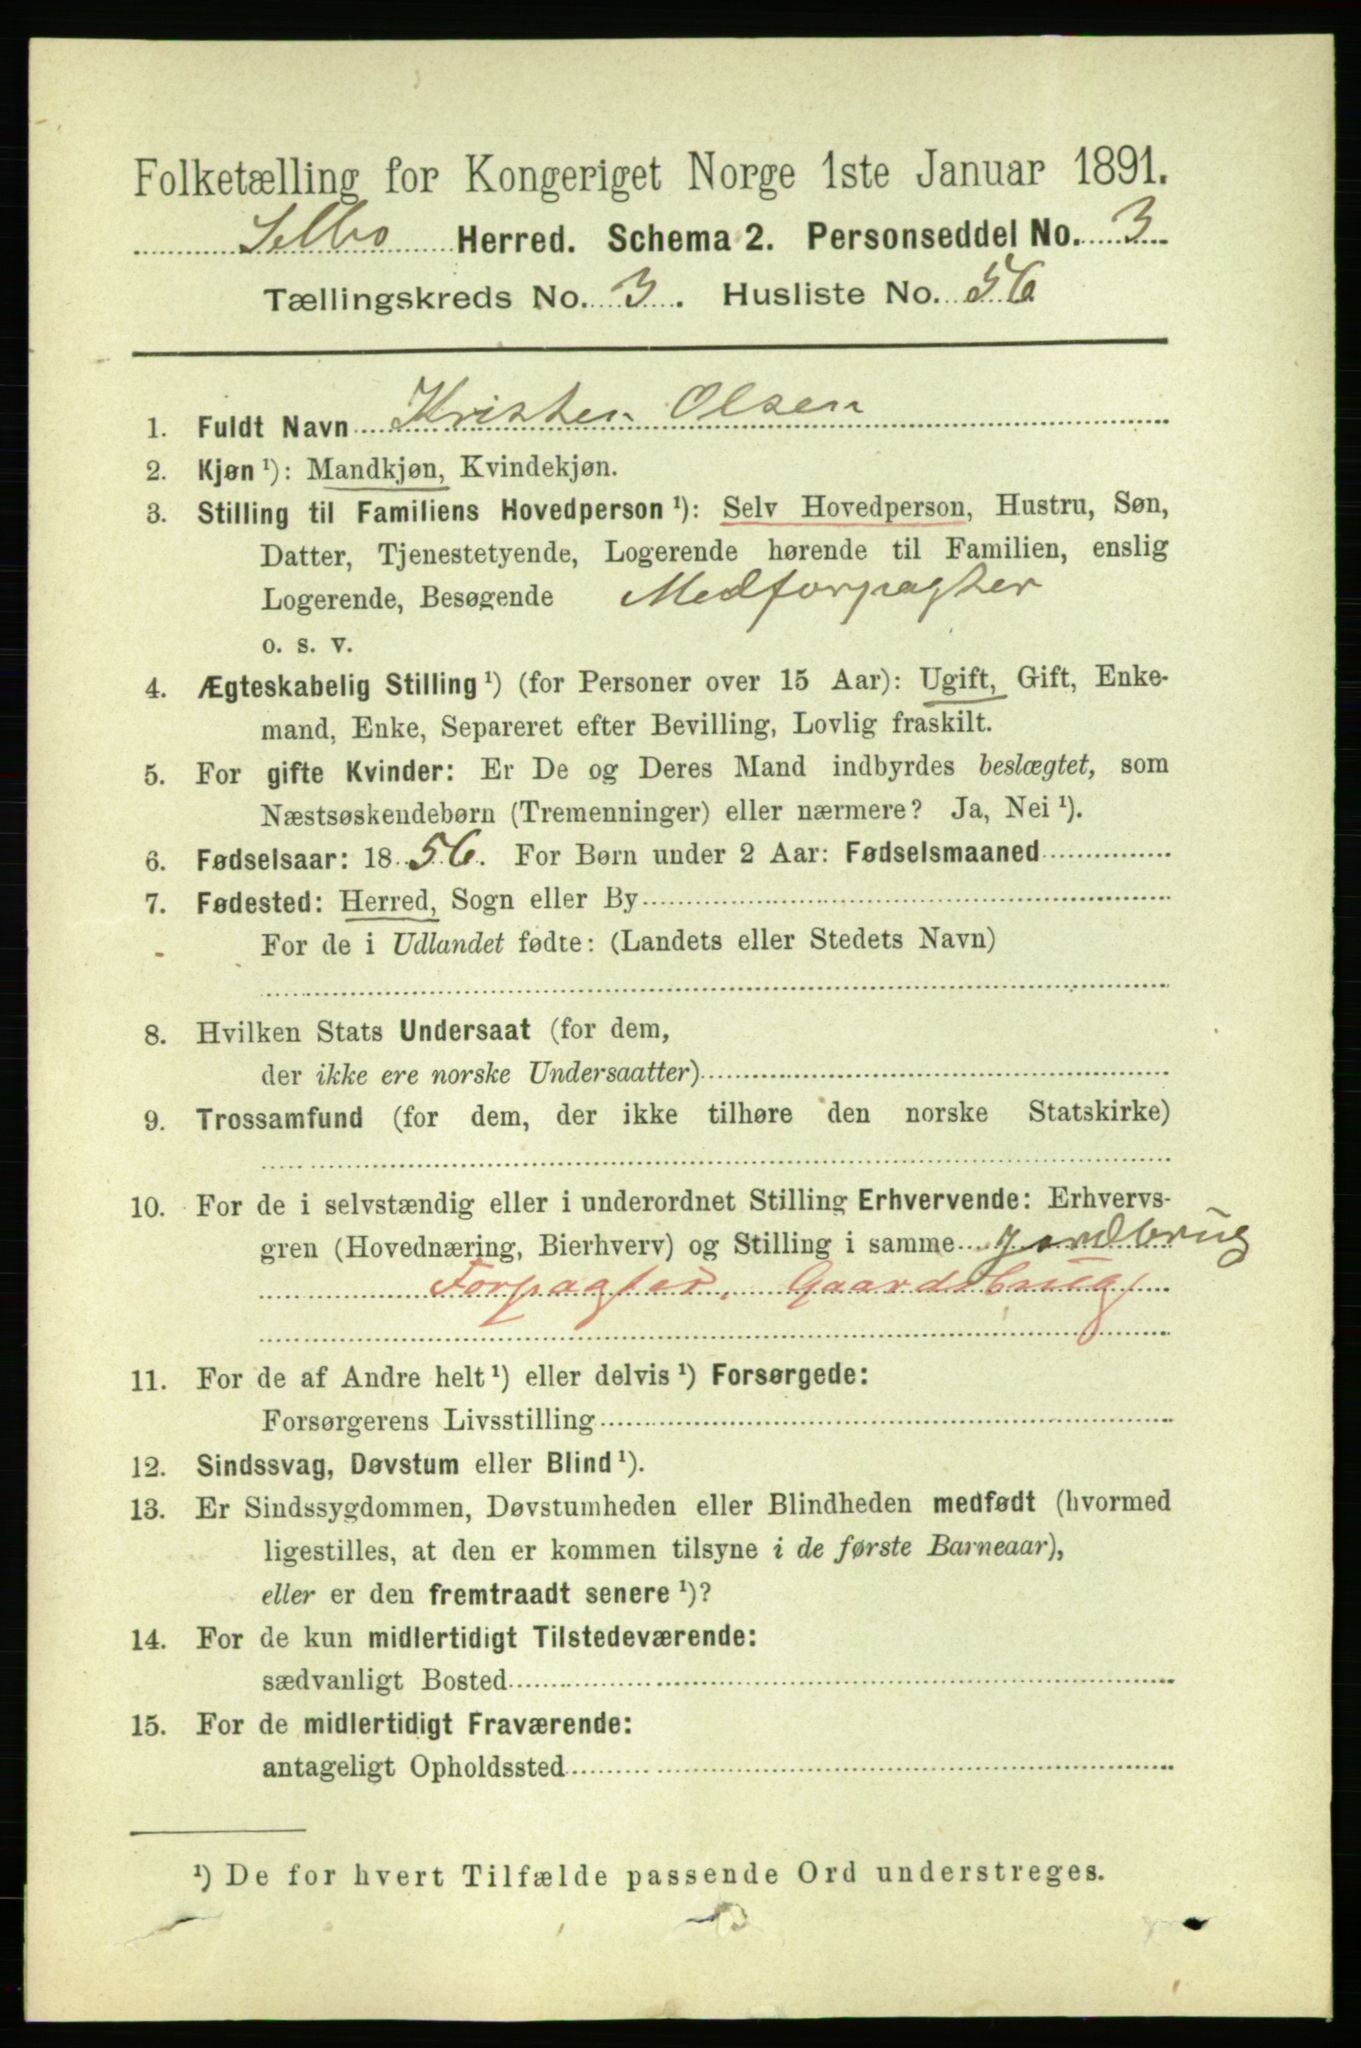 Folketælling for Kongeriget Norge 1ste Januar 1891.
Selbo Herred. Schema 2. Personseddel No. 3
Tællingskreds No. 3. Husliste No. 56
1. Fuldt Navn Kristen Olsen
2. Kjøn ¹): Mandkjøn, Kvindekjøn.
3. Stilling til Familiens Hovedperson ¹): Selv Hovedperson, Hustru, Søn,
Datter, Tjenestetyende, Logerende hørende til Familien, enslig
Logerende, Besøgende Medforpagter
o. s. v.
4. Ægteskabelig Stilling ¹) (for Personer over 15 Aar): Ugift, Gift, Enke-
mand, Enke, Separeret efter Bevilling, Lovlig fraskilt.
5. For gifte Kvinder: Er De og Deres Mand indbyrdes beslægtet, som
Næstsøskendebørn (Tremenninger) eller nærmere? Ja, Nei ¹).
6. Fødselsaar: 1856. For Børn under 2 Aar: Fødselsmaaned
7. Fødested: Herred, Sogn eller By
For de i Udlandet fødte: (Landets eller Stedets Navn)
8. Hvilken Stats Undersaat (for dem,
der ikke ere norske Undersaatter)
9. Trossamfund (for dem, der ikke tilhøre den norske Statskirke)
10. For de i selvstændig eller i underordnet Stilling Erhvervende: Erhvervs-
gren (Hovednæring, Bierhverv) og Stilling i samme Jordbrug
Forpagter, Gaardsbrug
11. For de af Andre helt ¹) eller delvis ¹) Forsørgede:
Forsørgerens Livsstilling
12. Sindssvag, Døvstum eller Blind ¹).
13. Er Sindssygdommen, Døvstumheden eller Blindheden medfødt (hvormed
ligestilles, at den er kommen tilsyne i de første Barneaar),
eller er den fremtraadt senere ¹)?
14. For de kun midlertidigt Tilstedeværende:
sædvanligt Bosted
15. For de midlertidigt Fraværende:
antageligt Opholdssted
¹) De for hvert Tilfælde passende Ord understreges.